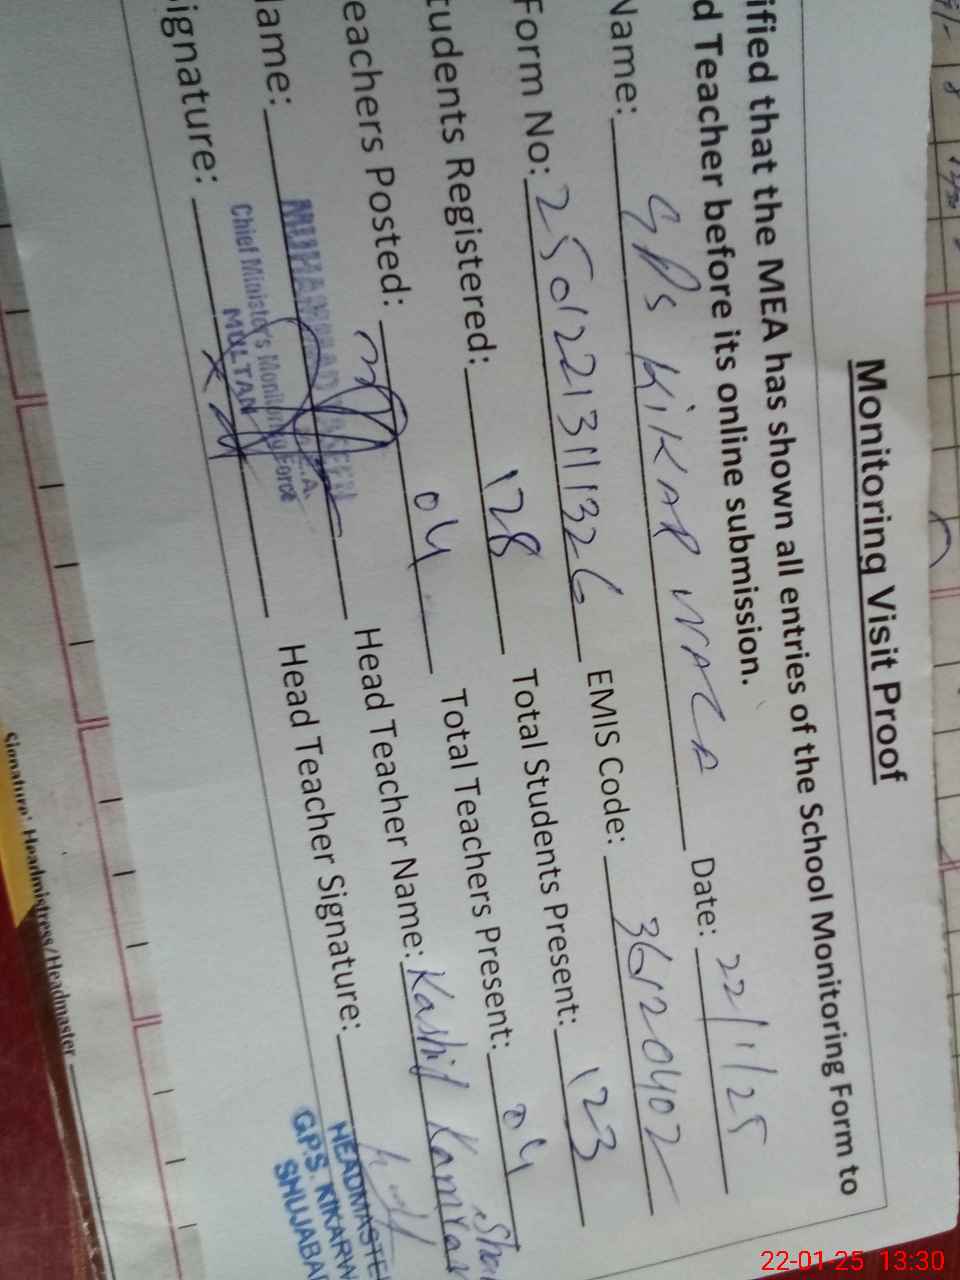 Monitoring Visit Proof
ified that the MEA has shown all entries of the School Monitoring Form to
d Teacher before its online submission.
Name: GPS KIKAR WALA Date: 22/1/25
Form No: 25012213111326 EMIS Code: 36120402
tudents Registered: 128 Total Students Present: 123
eachers Posted: 04 Total Teachers Present: 04
lame: Head Teacher Name: Kashif Kamran
ignature: Head Teacher Signature:
Chief Minister's Monitoring Force
MULTAN
HEADMASTE
G.P.S. KIKARW
SHUJABA
Signature: Headmistress/Headmaster
22-01-25 13:30